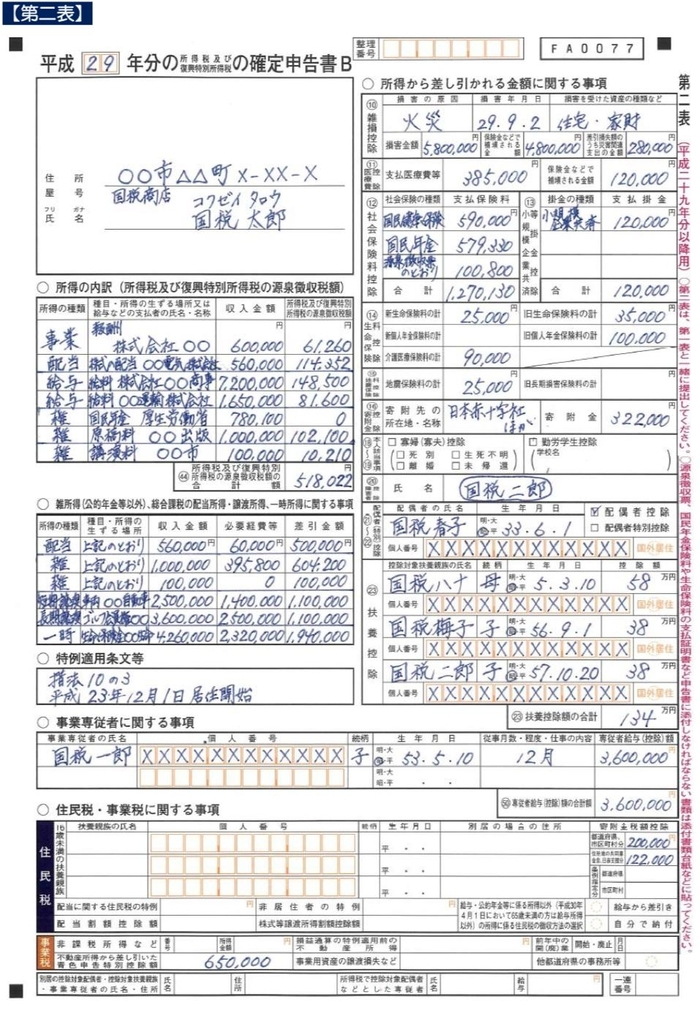 【第二表】
整理番号
FA0077
平成 29 年分の所得税及び復興特別所得税の確定申告書B
住所 ○○市△△町X-XX-X
屋号 国税商店
フリガナ コクゼイ タロウ
氏名 国税 太郎
第二表（平成二十九年分以降用）
○第二表は、第一表と一緒に提出してください。
○ 所得から差し引かれる金額に関する事項
⑩雑損控除
損害の原因 損害年月日 損害を受けた資産の種類など
火災 29.9.2 住宅・家財
損害金額 5,800,000 保険金などで補填される金額 4,800,000 差引損失額のうち災害関連支出の金額 280,000
⑪医療費控除 支払医療費等 385,000 保険金などで補填される金額 120,000
⑫社会保険料控除 社会保険の種類 支払保険料
国民健康保険 590,000
国民年金 579,330
源泉徴収票のとおり 100,800
合計 1,270,130
⑬小規模企業共済等掛金控除 掛金の種類 支払掛金
小規模企業共済 120,000
合計 120,000
⑭生命保険料控除 新生命保険料の計 25,000 旧生命保険料の計 35,000
新個人年金保険料の計 旧個人年金保険料の計 100,000
介護医療保険料の計 90,000
⑮地震保険料控除 地震保険料の計 25,000 旧長期損害保険料の計
⑯寄附金控除 寄附先の所在地・名称 日本赤十字社ほか 寄附金 322,000
⑱〜⑲本人該当事項 □寡婦(寡夫)控除 □勤労学生控除
□死別 □生死不明
□離婚 □未帰還
学校名
⑳障害者控除 氏名 国税 二郎
㉑〜㉒配偶者(特別)控除 配偶者の氏名 生年月日 配偶者控除
国税 春子 33.6.1 □配偶者特別控除
個人番号 XXXXXXXXXXXX 国外居住
㉓扶養控除 控除対象扶養親族の氏名 続柄 生年月日 控除額
国税 八十 母 5.3.10 58万円
個人番号 XXXXXXXXXXXX 国外居住
国税 梅子 子 56.9.1 38万円
個人番号 XXXXXXXXXXXX 国外居住
国税 二郎 子 57.10.20 38万円
個人番号 XXXXXXXXXXXX 国外居住
㉓扶養控除額の合計 134万円
○ 所得の内訳（所得税及び復興特別所得税の源泉徴収税額）
所得の種類 種目・所得の生ずる場所又は給与などの支払者の氏名・名称 収入金額 所得税及び復興特別所得税の源泉徴収税額
事業 報酬 株式会社○○ 600,000 61,260
配当 株式の配当 ○○電気株式会社 560,000 114,352
給与 給料 株式会社○○商事 7,200,000 148,500
給与 給料 ○○運輸株式会社 1,650,000 81,600
雑 国民年金 厚生労働省 780,100 0
雑 原稿料 ○○出版 1,000,000 102,100
雑 講演料 ○○市 100,000 10,210
㊹所得税及び復興特別所得税の源泉徴収税額の合計額 518,022
○ 雑所得(公的年金等以外)、総合課税の配当所得・譲渡所得、一時所得に関する事項
所得の種類 種目・所得の生ずる場所 収入金額 必要経費等 差引金額
配当 上記のとおり 560,000 60,000 500,000
雑 上記のとおり 1,000,000 395,800 604,200
雑 上記のとおり 100,000 0 100,000
短期譲渡 車両 ○○自動車 2,500,000 1,400,000 1,100,000
長期譲渡 ゴルフ会員権 3,600,000 2,500,000 1,100,000
一時 4,260,000 2,320,000 1,940,000
○ 特例適用条文等
措法10の3
平成23年12月1日居住開始
○ 事業専従者に関する事項
事業専従者の氏名 個人番号 続柄 生年月日 従事月数・程度・仕事の内容 専従者給与(控除)額
国税 一郎 XXXXXXXXXXXX 子 53.5.10 12月 3,600,000
㊿専従者給与(控除)額の合計額 3,600,000
○ 住民税・事業税に関する事項
住民税
16歳未満の扶養親族
扶養親族の氏名 個人番号 続柄 生年月日 別居の場合の住所 寄附金税額控除
都道府県、市区町村分 200,000
住所地の共同募金会、日赤支部分 122,000
条例指定分 都道府県
市区町村
配当に関する住民税の特例 非居住者の特例
配当割額控除額 株式等譲渡所得割額控除額
給与・公的年金等に係る所得以外（平成30年4月1日において65歳未満の方は給与所得以外）の所得に係る住民税の徴収方法の選択
給与から差引き
自分で納付
事業税
非課税所得など 番号 所得金額 損益通算の特例適用前の不動産所得 前年中の開(廃)業 開始・廃止 月日
不動産所得から差し引いた青色申告特別控除額 650,000 事業用資産の譲渡損失など 他都道府県の事務所等
別居の控除対象配偶者・控除対象扶養親族・事業専従者の氏名・住所 氏名 住所 所得税で控除対象配偶者などとした専従者 氏名 給与 一連番号